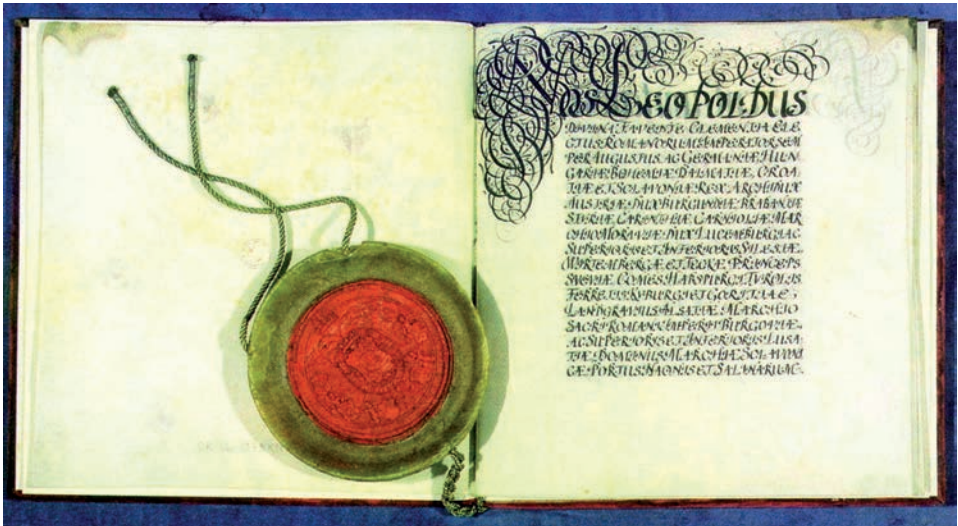 NOS LEOPOLDUS
DIVINA FAVENTE CLEMENTIA ELE
CTUS ROMANORUM IMPERATOR SEM
PER AUGUSTUS AC GERMANIÆ, HUN
GARIÆ BOHEMIÆ DALMATIÆ, CROA
TIÆ ET SCLAVONIÆ REX ARCHIDUX
AUSTRIÆ DUX BURGUNDIÆ BRABANTIÆ
STYRIÆ CARINTHIÆ CARNIOLIÆ MAR
CHIO MORAVIÆ DUX LUCEMBURGI AC
SUPERIORIS ET INFERIORIS SILESIÆ
WIRTEMBERGÆ ET TECKÆ PRINCEPS
SVEVIÆ COMES HABSPURGI TYROLIS
FERRETIS KYBURGI ET GORITIAE;
LANDGRAVIUS ALSATIÆ MARCHIO
SACRI ROMANI IMPERII BURGOVIÆ
AC SUPERIORIS ET INFERIORIS LUSA
TIÆ DOMINUS MARCHIÆ SCLAVONI
CÆ PORTUS NAONIS ET SALINARUM